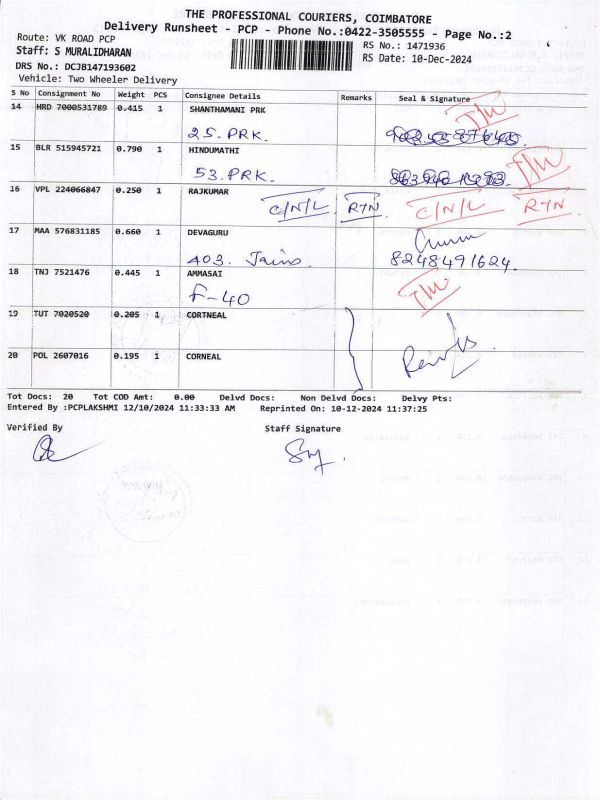 THE PROFESSIONAL COURIERS, COIMBATORE
Delivery Runsheet - PCP - Phone No.:0422-3505555 - Page No.:2
Route: VK ROAD PCP
RS No.: 1471936
Staff: S MURALIDHARAN
RS Date: 10-Dec-2024
DRS No.: DCJB147193602
Vehicle: Two Wheeler Delivery
S No Consignment No Weight PCS Consignee Details Remarks Seal & Signature
14 HRD 7000531789 0.415 1 SHANTHAMANI PRK
25. PRK.
15 BLR 515945721 0.790 1 HINDUMATHI
53. PRK.
16 VPL 224066847 0.250 1 RAJKUMAR
C/N/L RTN C/N/L RTN
17 MAA 576831185 0.660 1 DEVAGURU
403. Jains. 8248491624.
18 TNJ 7521476 0.445 1 AMMASAI
F-40
19 TUT 7020520 0.205 1 CORTNEAL
20 POL 2607016 0.195 1 CORNEAL
Tot Docs: 20 Tot COD Amt: 0.00 Delvd Docs: Non Delvd Docs: Delvy Pts:
Entered By :PCPLAKSHMI 12/10/2024 11:33:33 AM Reprinted On: 10-12-2024 11:37:25
Verified By Staff Signature